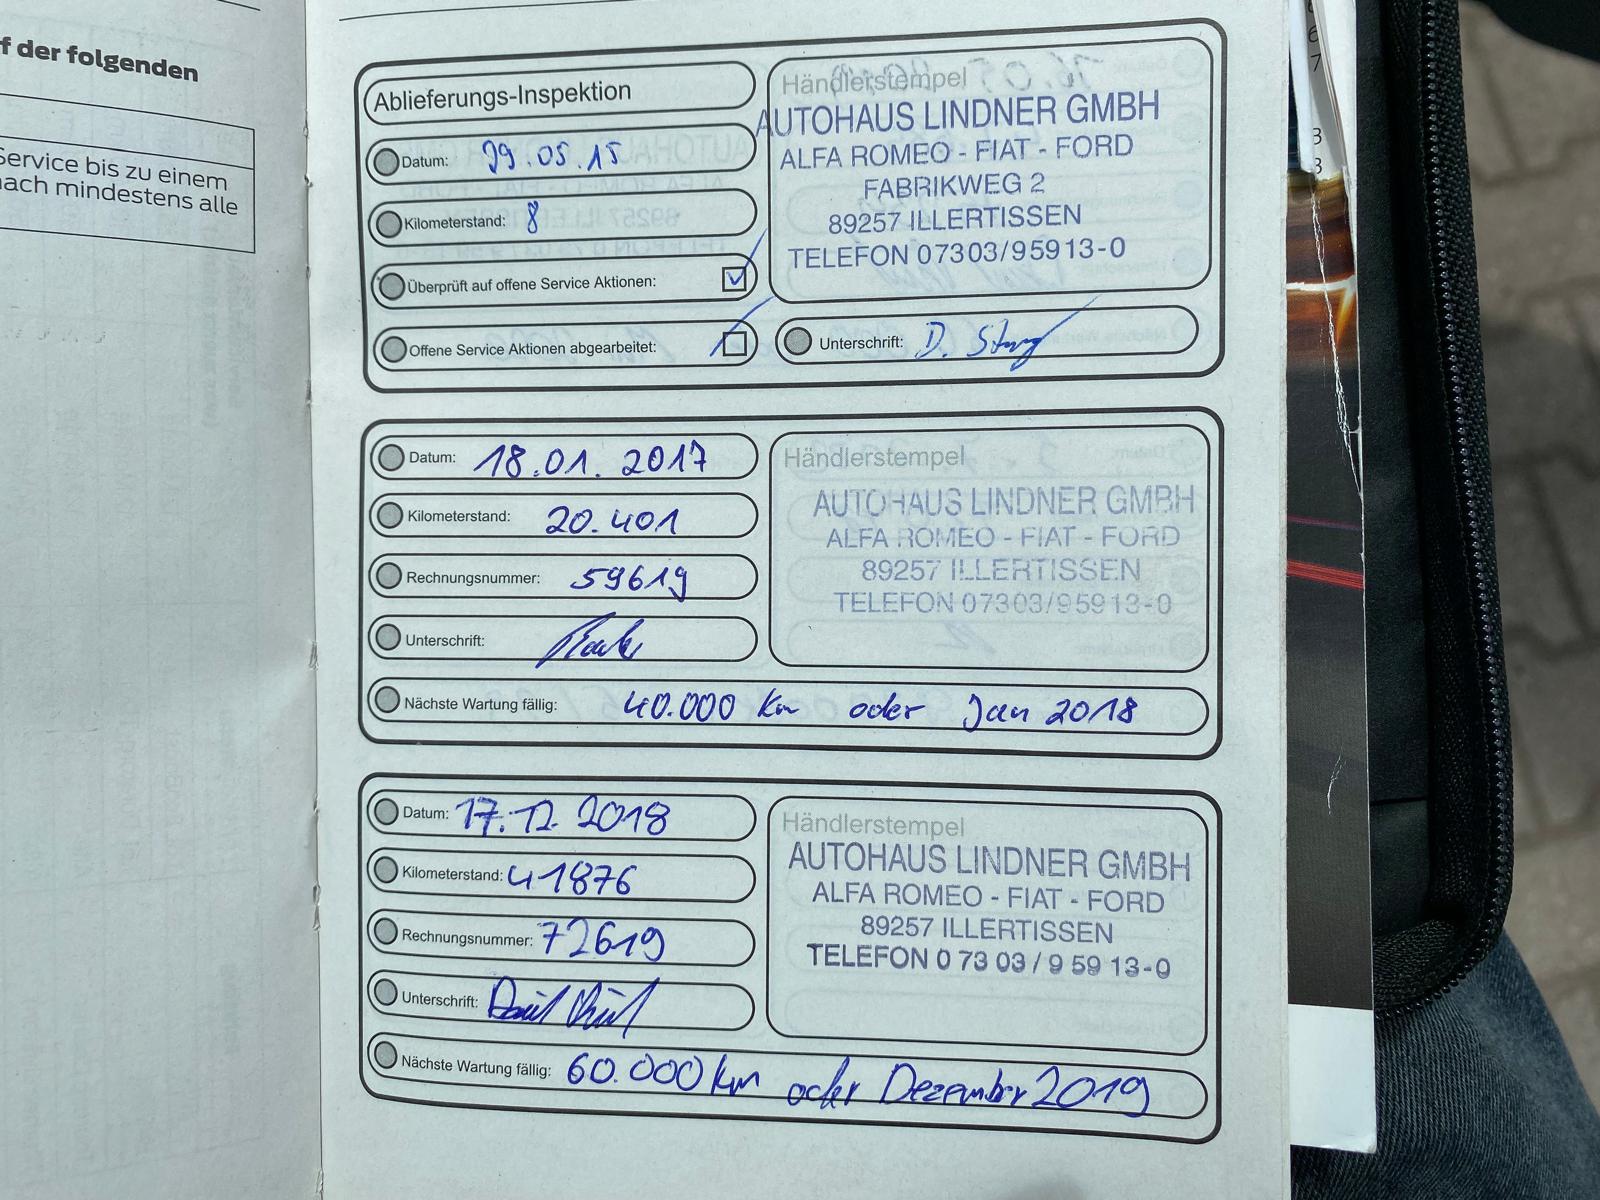 f der folgenden
Service bis zu einem
nach mindestens alle
Ablieferungs-Inspektion
Datum: 29.05.15
Kilometerstand: 8
Überprüft auf offene Service Aktionen:
Offene Service Aktionen abgearbeitet:
Händlerstempel
AUTOHAUS LINDNER GMBH
ALFA ROMEO - FIAT - FORD
FABRIKWEG 2
89257 ILLERTISSEN
TELEFON 07303/95913-0
Unterschrift: D.
Datum: 18.01.2017
Kilometerstand: 20.401
Rechnungsnummer: 59619
Unterschrift:
Händlerstempel
AUTOHAUS LINDNER GMBH
ALFA ROMEO - FIAT - FORD
89257 ILLERTISSEN
TELEFON 07303/95913-0
Nächste Wartung fällig: 40.000 km oder Jan 2018
Datum: 17.12.2018
Kilometerstand: 41876
Rechnungsnummer: 72619
Unterschrift:
Händlerstempel
AUTOHAUS LINDNER GMBH
ALFA ROMEO - FIAT - FORD
89257 ILLERTISSEN
TELEFON 0 73 03 / 9 59 13-0
Nächste Wartung fällig: 60.000 km oder Dezember 2019